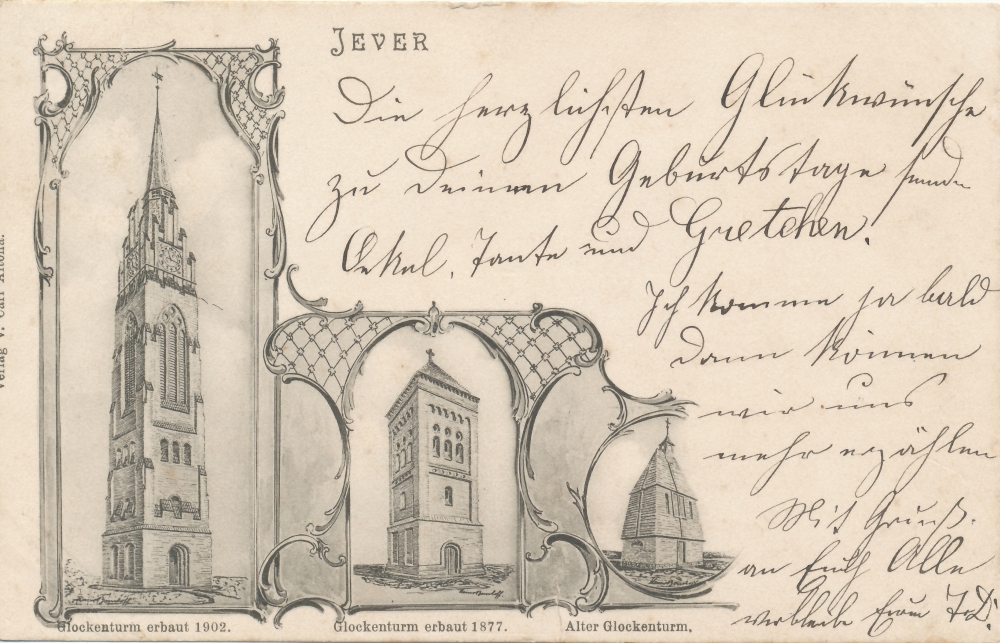 JEVER
Die herzlichsten Glückwünsche
zu Deinem Geburtstage senden
Onkel, Tante und Gretchen.
Ich komme ja bald
dann können
wir uns
mehr erzählen
Mit Gruß.
an Euch Alle
verbleibe Eure
Verlag v. Carl Altona.
Glockenturm erbaut 1902.
Glockenturm erbaut 1877.
Alter Glockenturm.